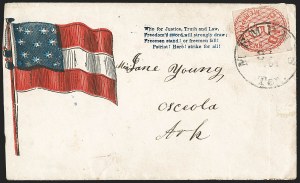 With for Justice, Truth and Law,
Freedom's sword will strongly draw;
Freemen stand! or freemen fall!
Patriot! Hero! strike for all!
Mrs Jane Young,
Osceola
Ark